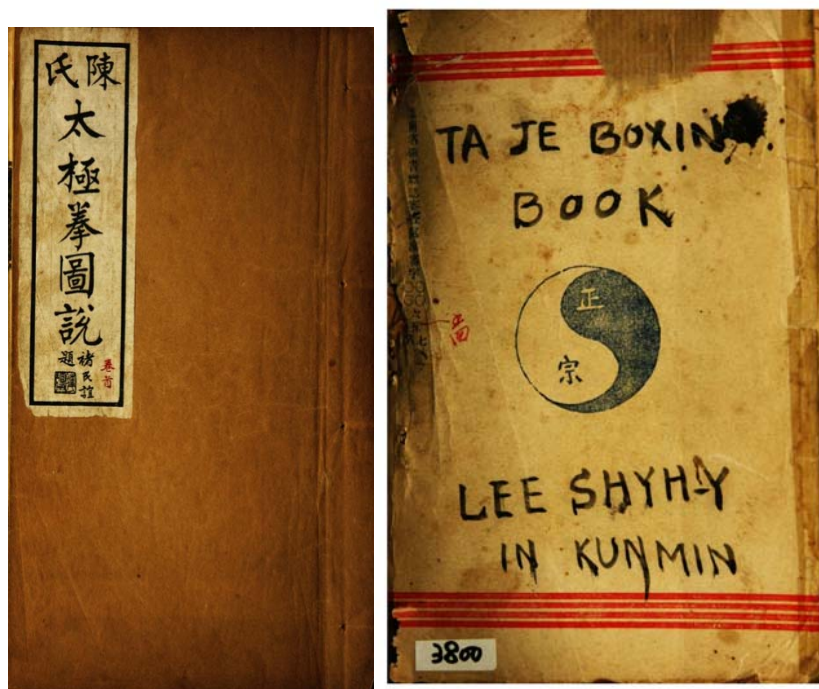 陳氏
太極拳圖說
褚民誼
題
卷首
TA JE BOXIN
BOOK
正
宗
LEE SHYHY
IN KUNMIN
3800